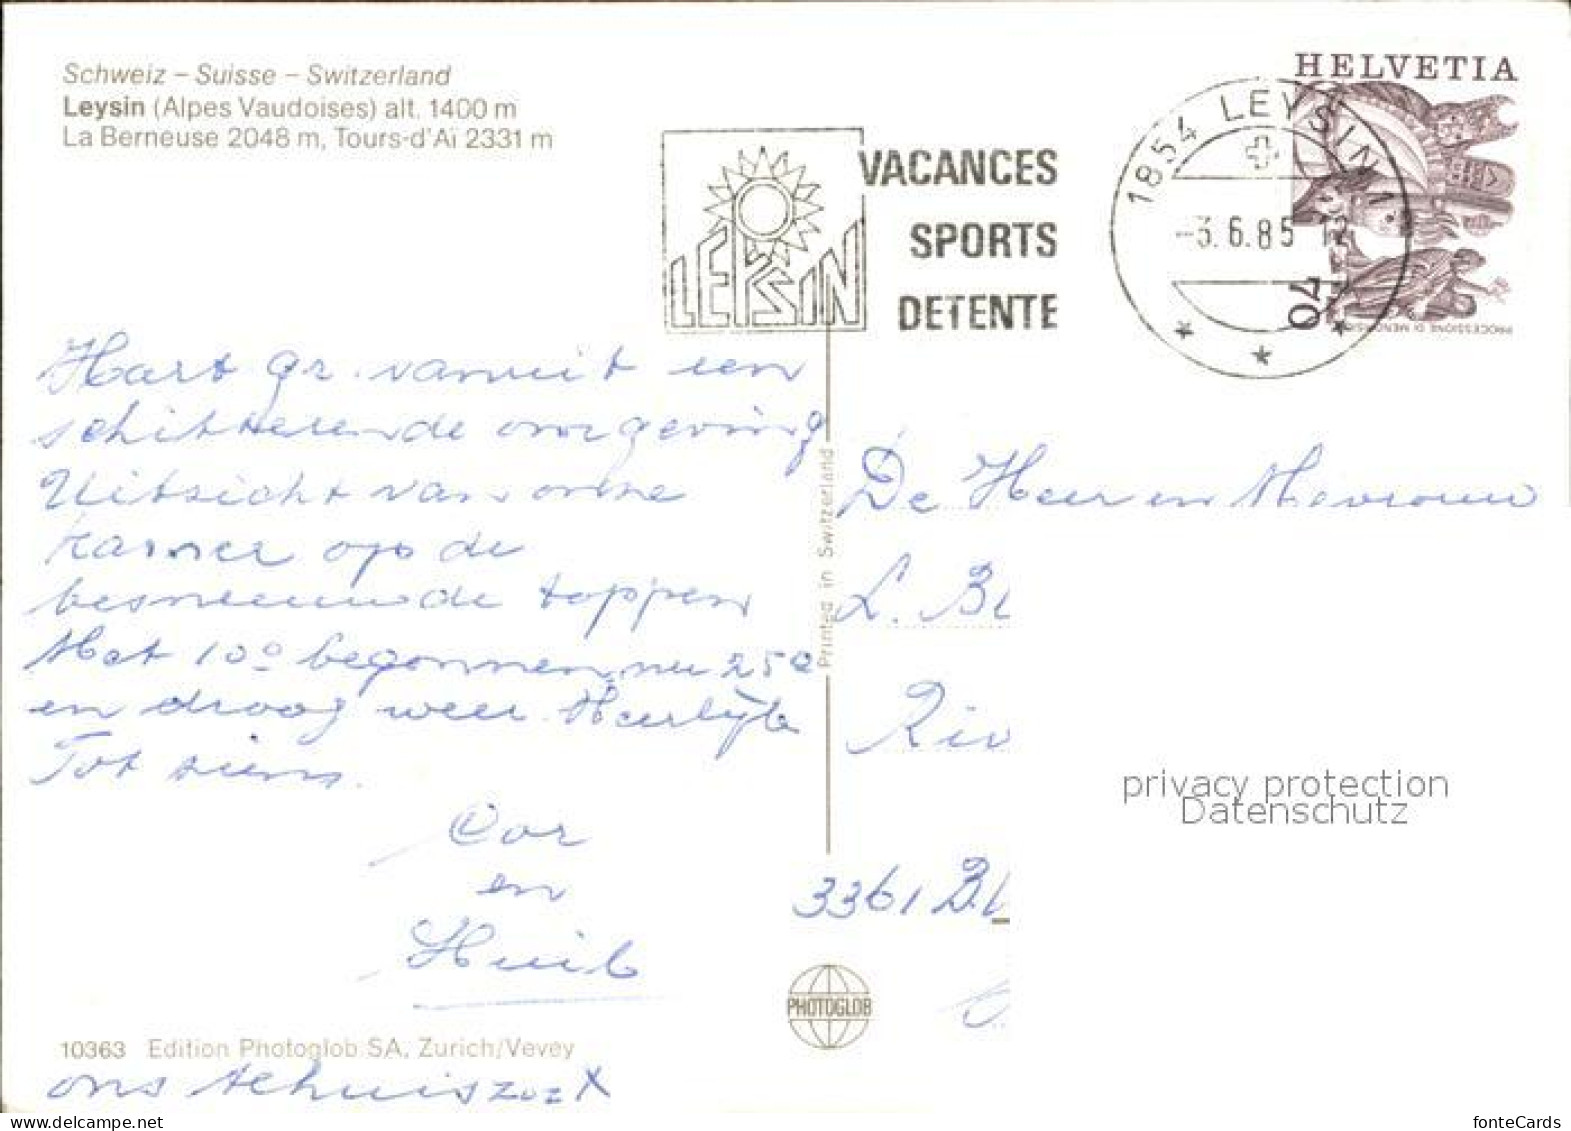 Schweiz – Suisse – Switzerland
Leysin (Alpes Vaudoises) alt. 1400 m
La Berneuse 2048 m, Tours-d'Aï 2331 m
HELVETIA
1854 LEYSIN 1
-3.6.85 12
70
PROCESSIONE DI MENDRISIO
LEYSIN
VACANCES
SPORTS
DETENTE
Hart gr. vanuit een
schitterende omgeving
Uitzicht van onze
kamer op de
besneeuwde toppen
Met 10° begonnen, nu 25°
en droog weer. Heerlijk
Tot ziens.
Cor
en
Huib
10363 Edition Photoglob SA, Zurich/Vevey
ons
Printed in Switzerland
PHOTOGLOB
De Heer en Mevrouw
L. B
Riv
3361 B
privacy protection
Datenschutz
fonteCards